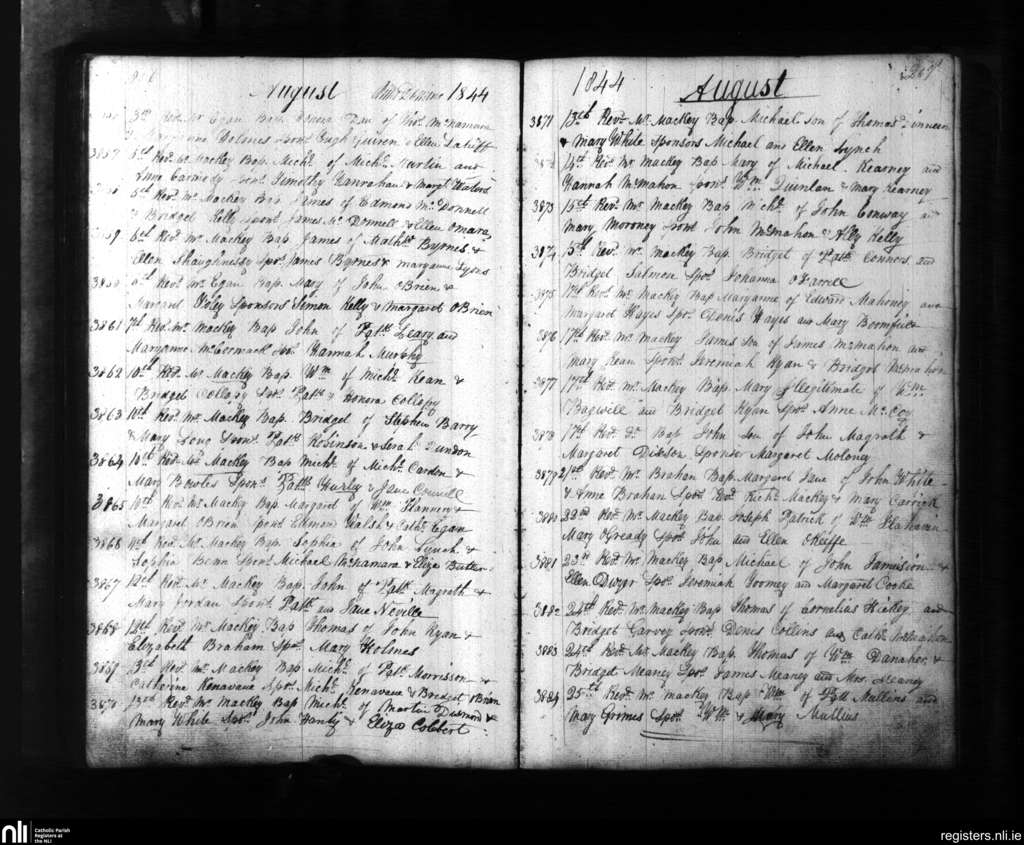 August 1844
3rd Revd Mr Egan Bap. of McNamara
& Holmes Spons Hugh Quiren & Ellen
3857 5th Revd Mr Mackey Bap. Michl of Michl Martin and
Carmody Spons Timothy Hanrahan & Margt Waters
5th Revd Mr Mackey Bap. James of Edmond McDonnell
& Bridget Kelly Spons James McDonnell & Ellen Omara
3859 6th Revd Mr Mackey Bap. James of Mathw Byrnes &
Ellen Shaughnessy Spos James Byrnes & Maryanne Lyons
6th Revd Mr Egan Bap. Mary of John OBrien &
Margaret Sponsors Simon Kelly & Margaret OBrien
3861 7th Revd Mr Mackey Bap John of Patk Leary and
Maryanne McCormack Spos Hannah Murphy
3862 10th Revd Mr Mackey Bap. Wm of Michl Kean &
Bridget Collopy Spos Patk & Honora Collopy
3863 10th Revd Mr Mackey Bap. Bridget of Stephen Barry
& Mary Long Spons Patk Robinson & Sarah Dundon
3864 10th Revd Mr Mackey Bap Michl of Michl Carden &
Mary Bowles Spons Patk Hurley & Jane Connell
3865 10th Revd Mr Mackey Bap Margaret of Wm Flannery &
Margaret OBrien Spons Edmond Walsh & Cathe Egan
3866 11th Revd Mr Mackey Bap. Sophia of John Lynch &
Sophia Benn Spons Michael McNamara & Eliza Butler
3867 12th Revd Mr Mackey Bap. John of Patk Magrath &
Mary Jordan Spons Patk and Jane Neville
3868 12th Revd Mr Mackey Bap Thomas of John Ryan &
Elizabeth Braham Spos Mary Holmes
3869 Revd Mr Mackey Bap Michl of Patk Morrison &
Catherine Kenavane Spos Michl Kenavane & Bridget Brien
3870 13th Revd Mr Mackey Bap Michl of Martin Dismond &
Mary White Spos John Hanly & Eliza Colbert
1844 August 267
3871 13th Revd Mr Mackey Bap Michael son of Thomas
& Mary White Sponsors Michael and Ellen Lynch
3872 14th Revd Mr Mackey Bap Mary of Michael Kearney and
Hannah McMahon Spons Wm Quinlan & Mary Kearney
3873 15th Revd Mr Mackey Bap Michl of John Conway and
Mary Moroney Spons John McMahon & Ally Kelly
3874 15th Revd Mr Mackey Bap Bridget of Patk Connors and
Bridget Salmon Spos Johanna OFarrell
3875 17th Revd Mr Mackey Bap Maryanne of Edward Mahoney and
Margaret Hayes Spos Denis Hayes and Mary
3876 17th Revd Mr Mackey James son of James McMahon and
Mary Kean Spons Jeremiah Ryan & Bridget McMahon
3877 17th Revd Mr Mackey Bap. Mary illegitimate of Wm
Bagwill and Bridget Ryan Spos Anne McCoy
3878 17th Revd Do Bap John son of John Magrath &
Margaret Dickson Sponsr Margaret Moloney
3879 21st Revd Mr Brahan Bap. Margaret Jane of John White
& Anne Brahan Spos Revd Richd Mackey & Mary Carrick
3880 22nd Revd Mr Mackey Bap. Joseph Patrick of Wm Flahavin
Mary OGready Spos John and Ellen OKeiffe
3881 23rd Revd Mr Mackey Bap Michael of John Jamieson &
Ellen Dwyer Spos Jeremiah Toomey and Margaret Cooke
3882 24th Revd Mr Mackey Bap Thomas of Cornelius Hickey and
Bridget Garvey Spons Denis Collins and Cathe McMahon
3883 24th Revd Mr Mackey Bap. Thomas of Wm Danaher &
Bridget Meaney Spos James Meaney and Mrs Meaney
3884 25th Revd Mr Mackey Bap Wm of Patt Mullins and
Mary Grimes Spos Wm & Mary Mullins
nli Catholic Parish
Registers at
the NLI
registers.nli.ie